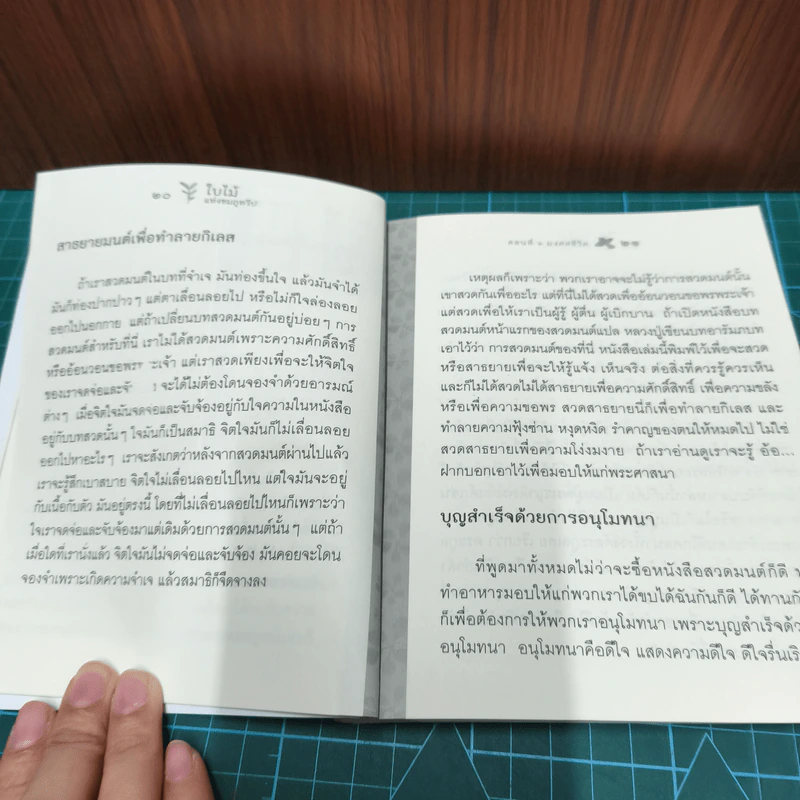 ๒๐ ใบไม้
แห่งชมภูทวีป
สาธยายมนต์เพื่อทำลายกิเลส
ถ้าเราสวดมนต์ในบทที่จำเจ มันท่องขึ้นใจ แล้วมันจำได้
มันก็ท่องปากเปาวๆ แต่ตาเลื่อนลอยไป หรือไม่ก็ใจล่องลอย
ออกไปนอกกาย แต่ถ้าเปลี่ยนบทสวดมนต์กันอยู่บ่อยๆ การ
สวดมนต์สำหรับที่นี่ เราไม่ได้สวดมนต์เพราะความศักดิ์สิทธิ์
หรืออ้อนวอนขอพร ะเจ้า แต่เราสวดเพียงเพื่อจะให้จิตใจ
ของเราจดจ่อและจั จะได้ไม่ต้องโดนจองจำด้วยอารมณ์
ต่างๆ เมื่อจิตใจมันจดจ่อและจับจ้องอยู่กับใจความในหนังสือ
อยู่กับบทสวดนั้นๆ ใจมันก็เป็นสมาธิ จิตใจมันก็ไม่เลื่อนลอย
ออกไปหาอะไรๆ เราจะสังเกตว่าหลังจากสวดมนต์ผ่านไปแล้ว
เราจะรู้สึกเบาสบาย จิตใจไม่เลื่อนลอยไปไหน แต่ใจมันจะอยู่
กับเนื้อกับตัว มันอยู่ตรงนี้ โดยที่ไม่เลื่อนลอยไปไหนก็เพราะว่า
ใจเราจดจ่อและจับจ้องมาแต่เดิมด้วยการสวดมนต์นั้นๆ แต่ถ้า
เมื่อใดที่เรานั่งแล้ว จิตใจมันไม่จดจ่อและจับจ้อง มันคอยจะโดน
จองจำเพราะเกิดความจำเจ แล้วสมาธิก็จืดจางลง
ตอนที่ ๑ มงคลชีวิต ๒๑
เหตุผลก็เพราะว่า พวกเราอาจจะไม่รู้ว่าการสวดมนต์นั้น
เขาสวดกันเพื่ออะไร แต่ที่นี่ไม่ได้สวดเพื่ออ้อนวอนขอพรพระเจ้า
แต่สวดเพื่อให้เราเป็นผู้รู้ ผู้ตื่น ผู้เบิกบาน ถ้าเปิดหนังสือบท
สวดมนต์หน้าแรกของสวดมนต์แปล หลวงปู่เขียนบทอารัมภบท
เอาไว้ว่า การสวดมนต์ของที่นี่ หนังสือเล่มนี้พิมพ์ไว้เพื่อจะสวด
หรือสาธยายเพื่อจะให้รู้แจ้ง เห็นจริง ต่อสิ่งที่ควรรู้ควรเห็น
และก็ไม่ได้สวดไม่ได้สาธยายเพื่อความศักดิ์สิทธิ์ เพื่อความขลัง
หรือเพื่อความขอพร สวดสาธยายนี่ก็เพื่อทำลายกิเลส และ
ทำลายความฟุ้งซ่าน หงุดหงิด รำคาญของตนให้หมดไป ไม่ใช่
สวดสาธยายเพื่อความโง่งมงาย ถ้าเราอ่านดูเราจะรู้ อ้อ...
ฝากบอกเอาไว้เพื่อมอบให้แก่พระศาสนา
บุญสำเร็จด้วยการอนุโมทนา
ที่พูดมาทั้งหมดไม่ว่าจะซื้อหนังสือสวดมนต์ก็ดี
ทำอาหารมอบให้แก่พวกเราได้ขบได้ฉันกันก็ดี ได้ทานกั
ก็เพื่อต้องการให้พวกเราอนุโมทนา เพราะบุญสำเร็จด้ว
อนุโมทนา อนุโมทนาคือดีใจ แสดงความดีใจ ดีใจรื่นเริ